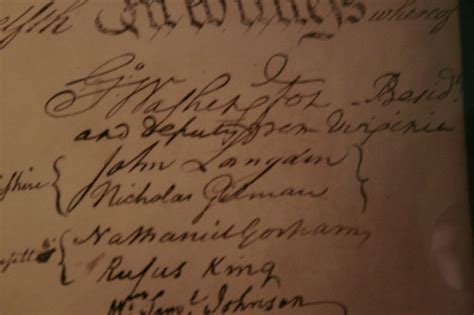 In Witness whereof
G⁰ Washington Presidᵗ
and deputy from Virginia
John Langdon
shire Nicholas Gilman
Nathaniel Gorham
setts
Rufus King
Wᵐ Samˡ Johnson